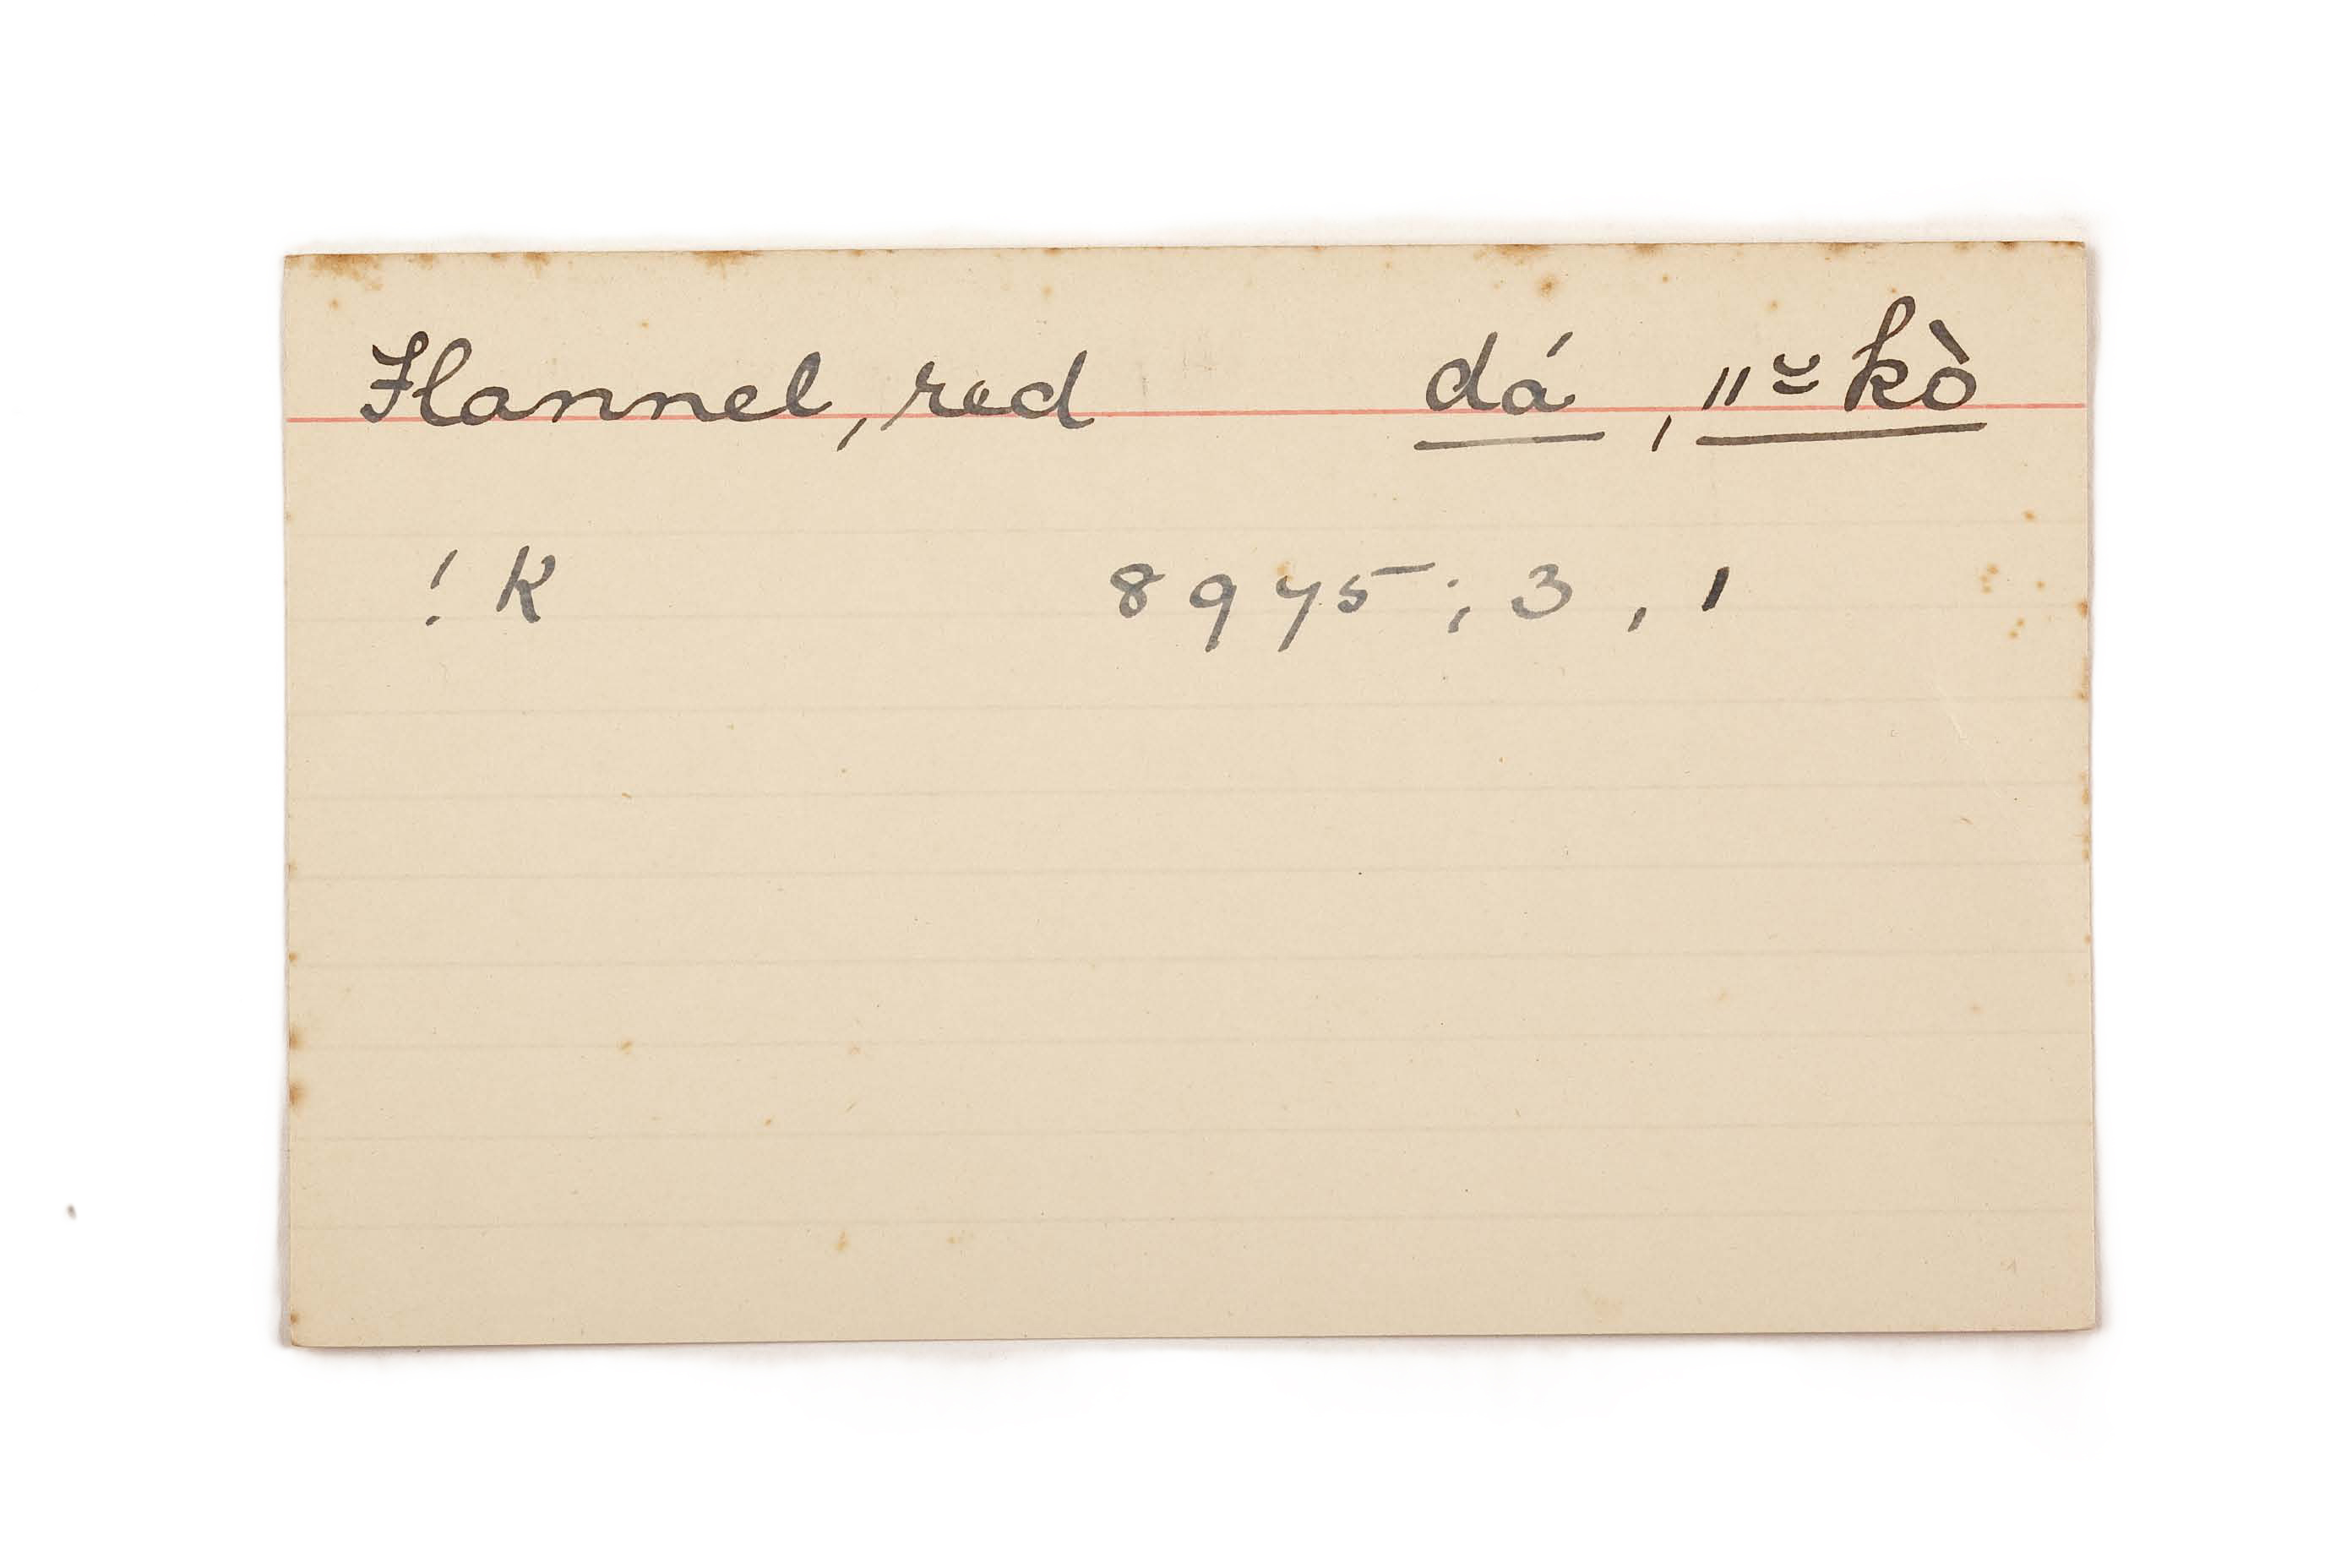 Flannel, red dá, ǁ≍kò
! K 8975; 3, 1